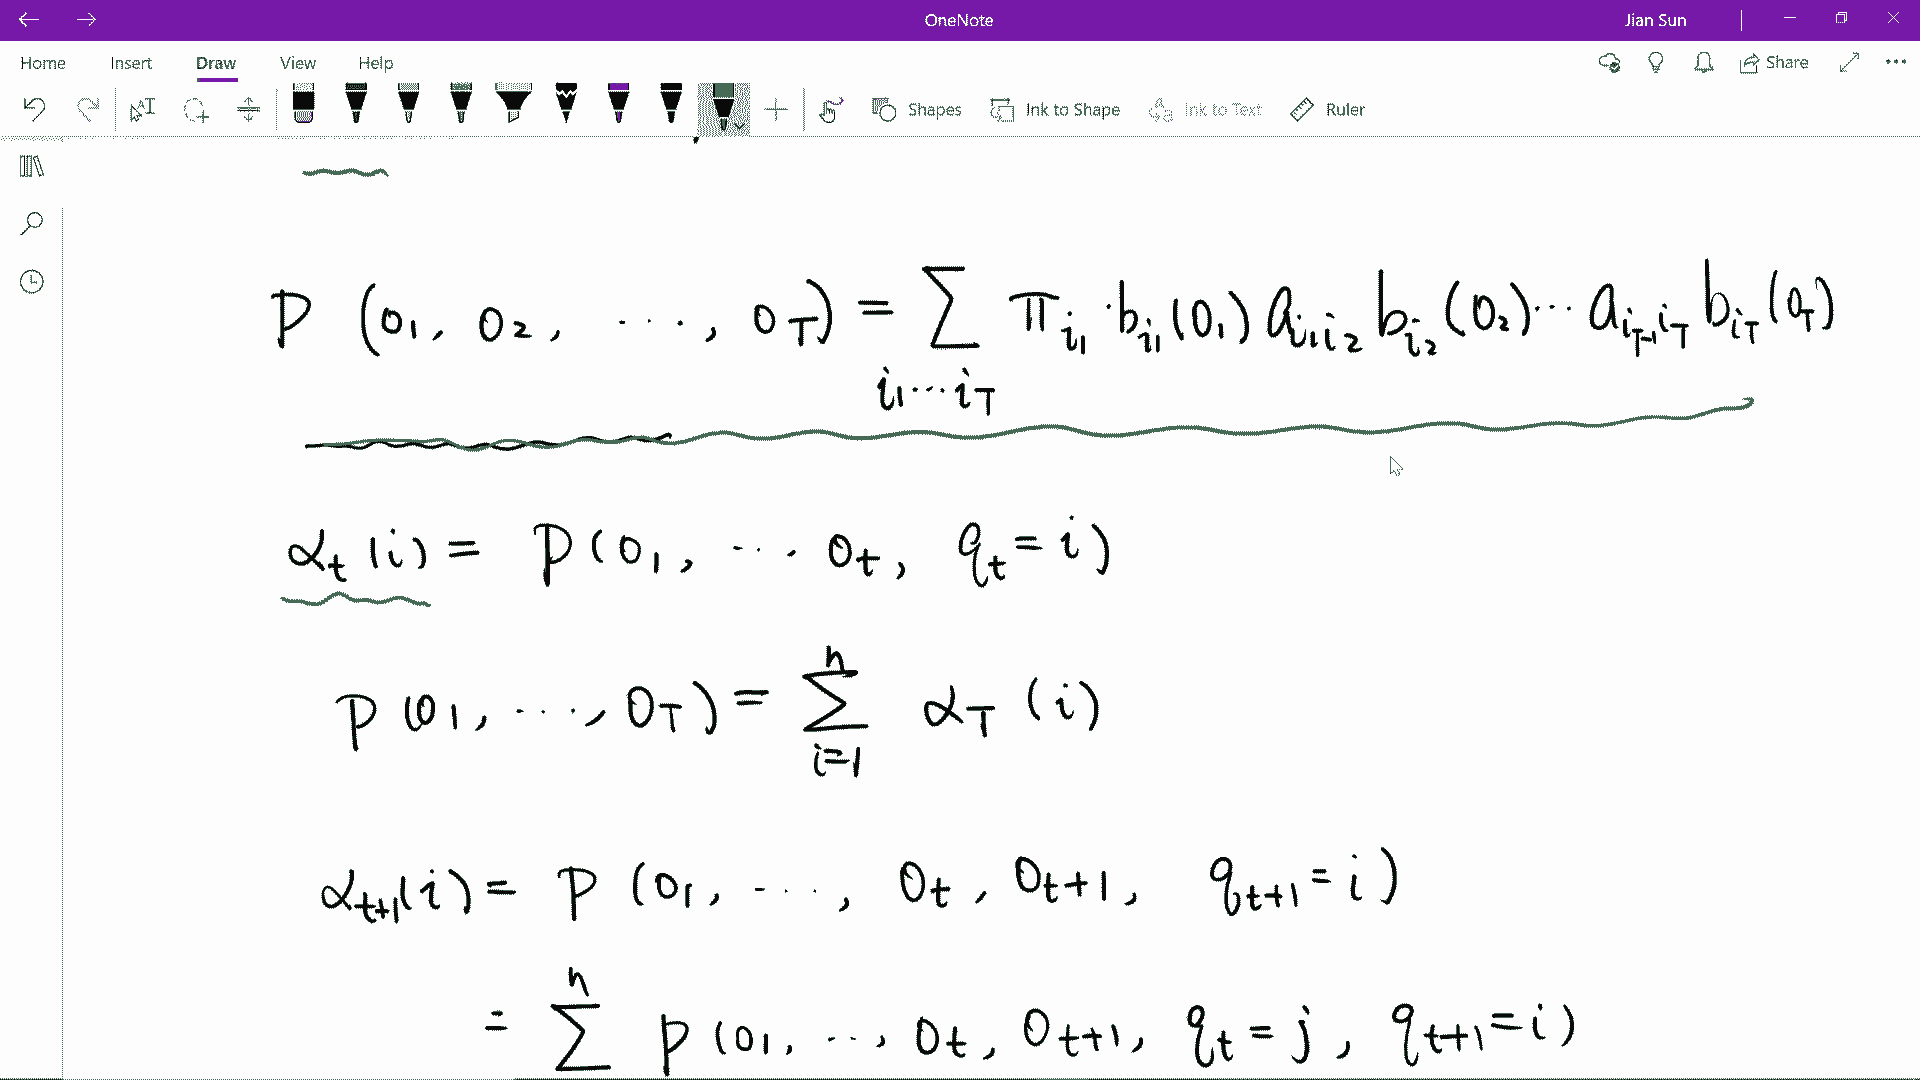 OneNote
Jian Sun
Home Insert Draw View Help
Share
Shapes Ink to Shape Ink to Text Ruler
P (o₁, o₂, ..., o_T) = ∑_{i₁...i_T} π_{i₁} · b_{i₁}(o₁) a_{i₁i₂} b_{i₂}(o₂) ... a_{i_{T-1}i_T} b_{i_T}(o_T)
α_t(i) = P(o₁, ... o_t, q_t = i)
P(o₁, ..., o_T) = ∑_{i=1}^{n} α_T(i)
α_{t+1}(i) = P(o₁, ..., o_t, o_{t+1}, q_{t+1} = i)
= ∑^{n} P(o₁, ..., o_t, o_{t+1}, q_t = j, q_{t+1} = i)